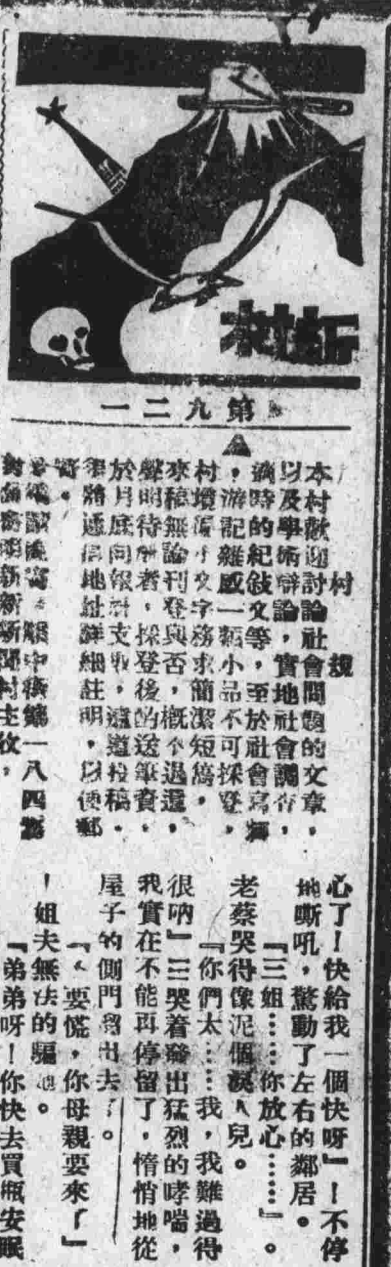 新村
第九二一
村規
本村歡迎討論社會問題的文章，
以及學術辯論，實地社會調查，
時的紀敍文等，至於社會寫
，游記雜感一類小品不可採登，
村壇小文字務求簡潔短篇，
來稿無論刊登與否，概不退還，
聲明待酬者，採登後的送筆資，
於月底向報社支取，遠道投稿，
將通信地址詳細註明，以便郵
寄。
一八四號
新新新聞村主收，
心了！快給我一個快呀』！不停
地嘶吼，驚動了左右的鄰居。
『三姐……你放心……』。
老蔡哭得像泥個淚人兒。
『你們太……我，我難過得
很吶』三三哭着發出猛烈的哮喘，
我實在不能再停留了，悄悄地從
屋子的側門溜出去了。
『不要慌，你母親要來了』
！姐夫無法的騙她。
『弟弟呀！你快去買瓶安眠